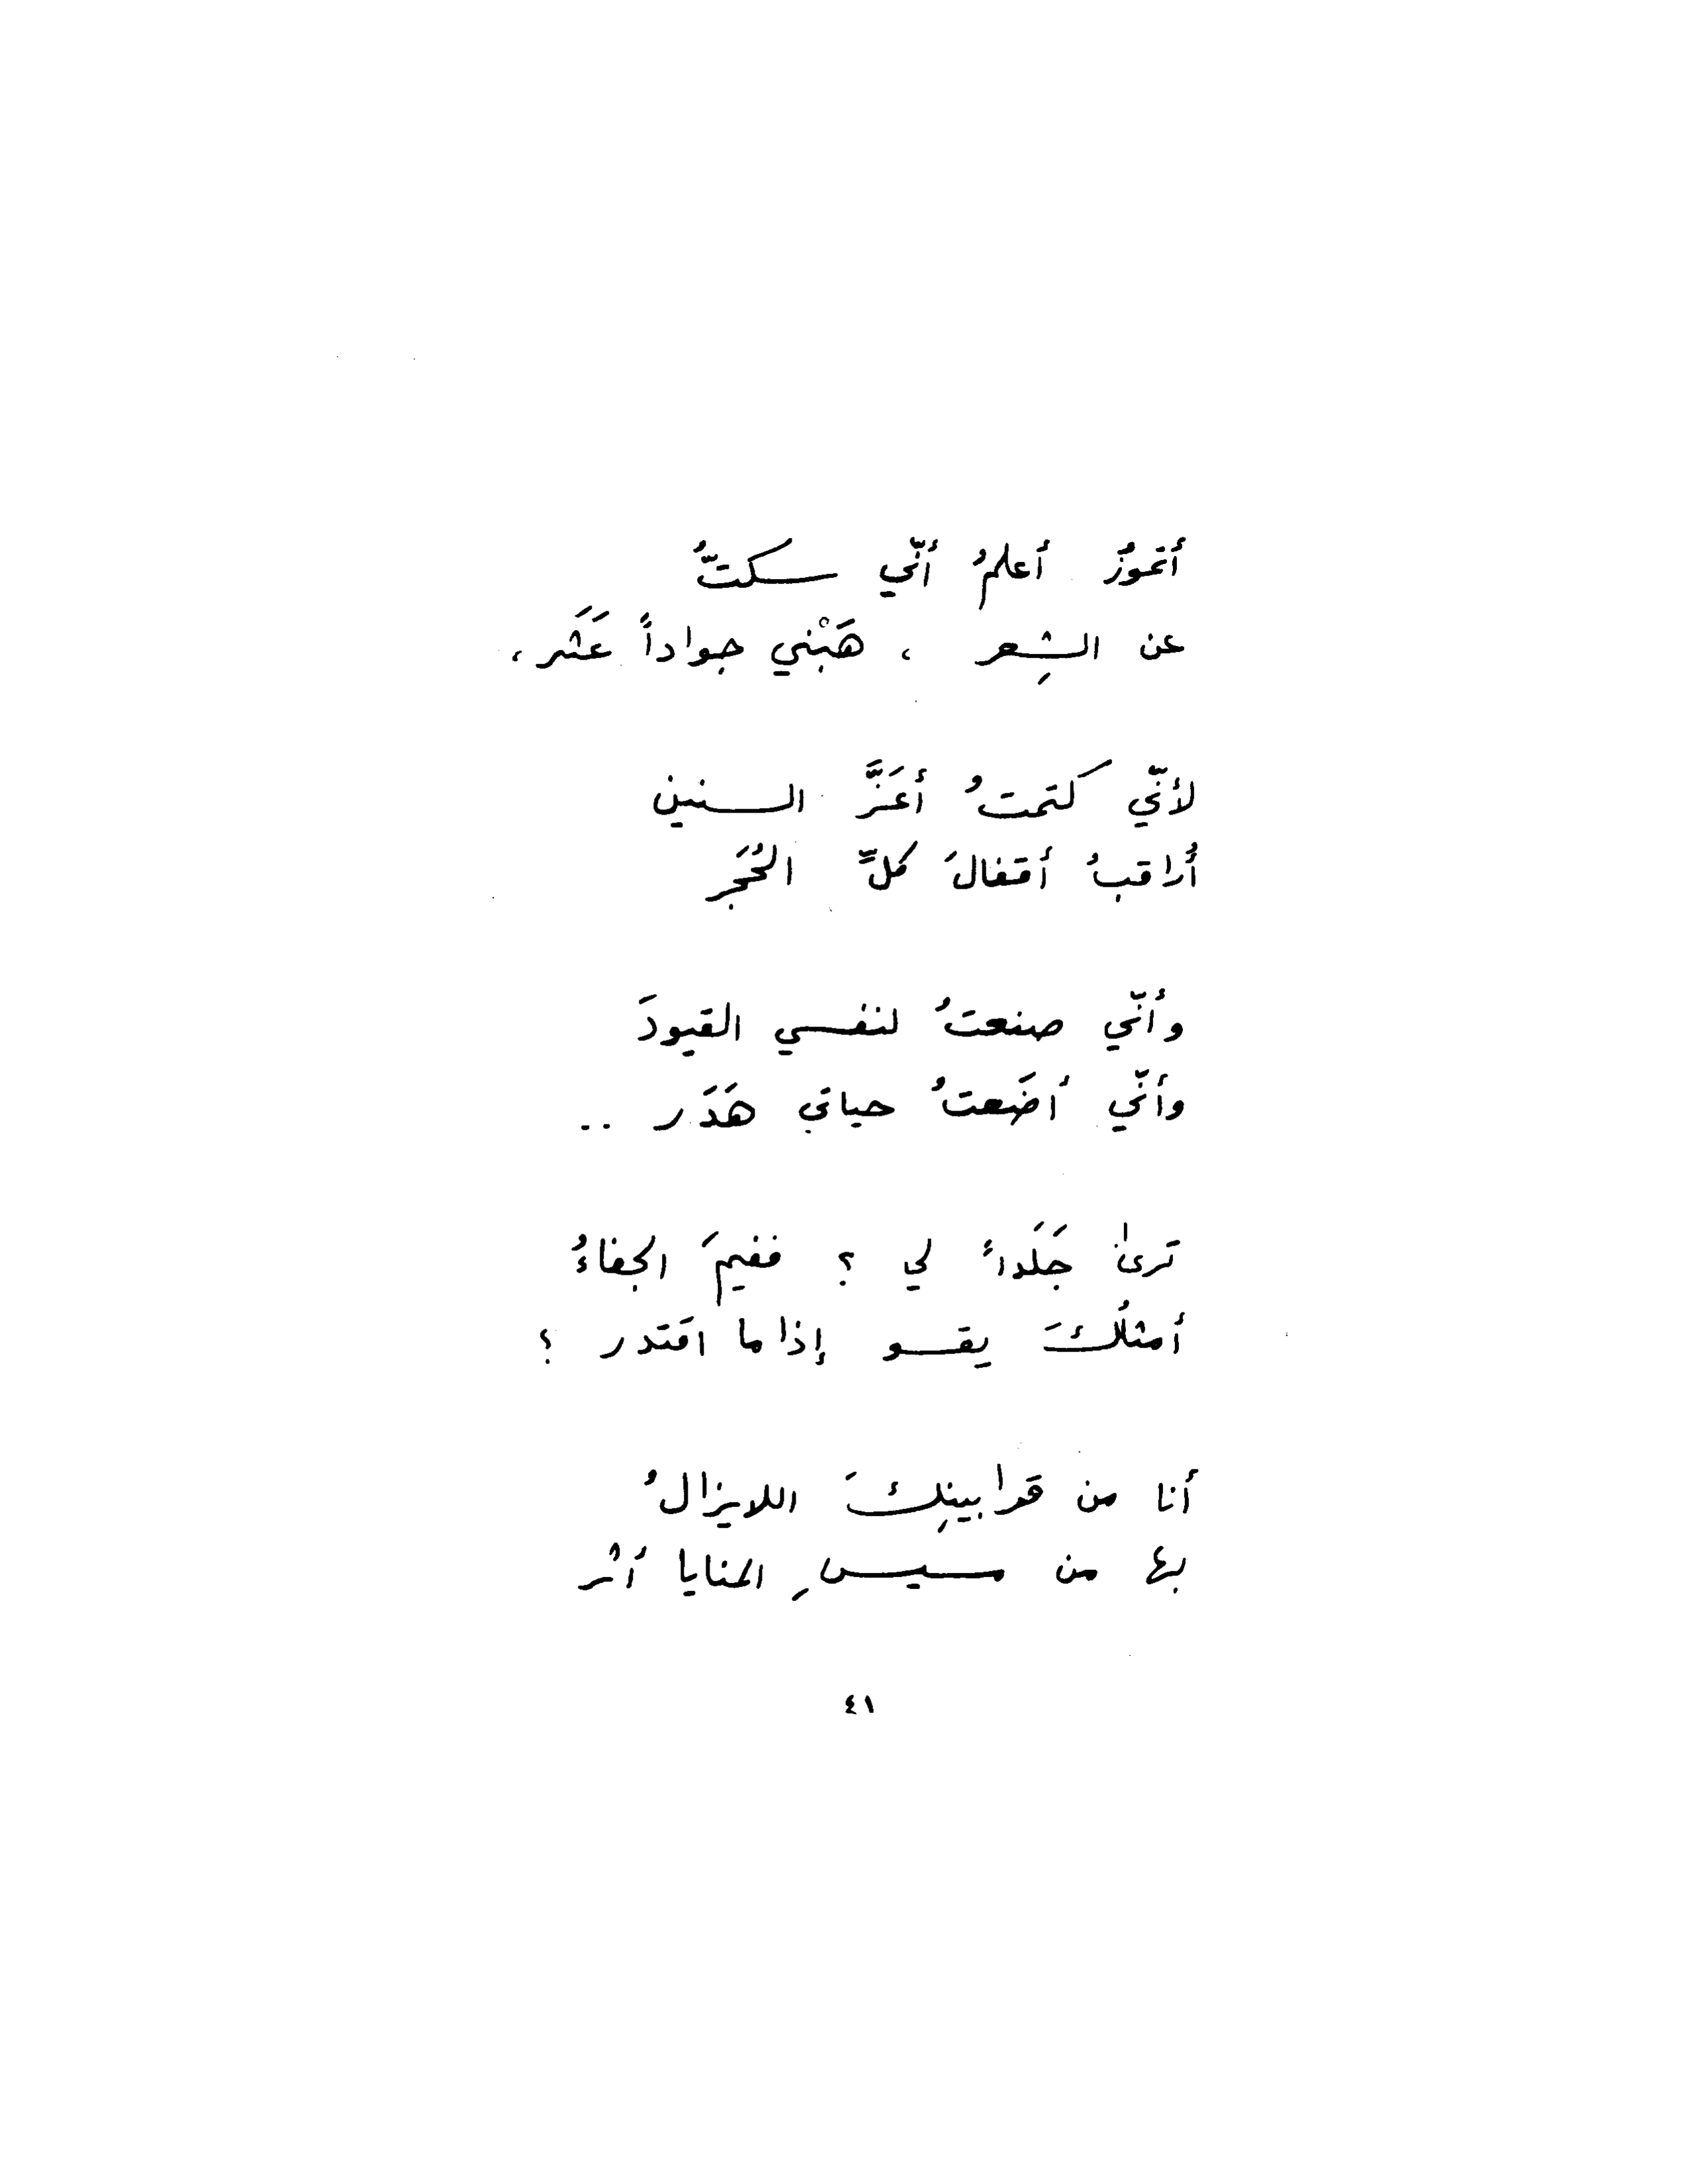 أتموزُ أعلمُ أنّي سكتُّ
عن الشِعر ، هَبْني جواداً عَثَر ،
لأنّي كتمتُ أعَزَّ السنين
أُراقبُ أقفالَ كلِّ الحُجَر
وأنّي صنعتُ لنفسي القيودَ
وأنّي أضَعتُ حياتي هَدَر ..
ترىٰ جَلَداً لي ؟ ففيمَ الجفاءُ
أمثلُكَ يقسو إذا ما اقتدر ؟
أنا من قرابينِكَ اللايزالُ
بها من مسيسِ المنايا أثر
٤١